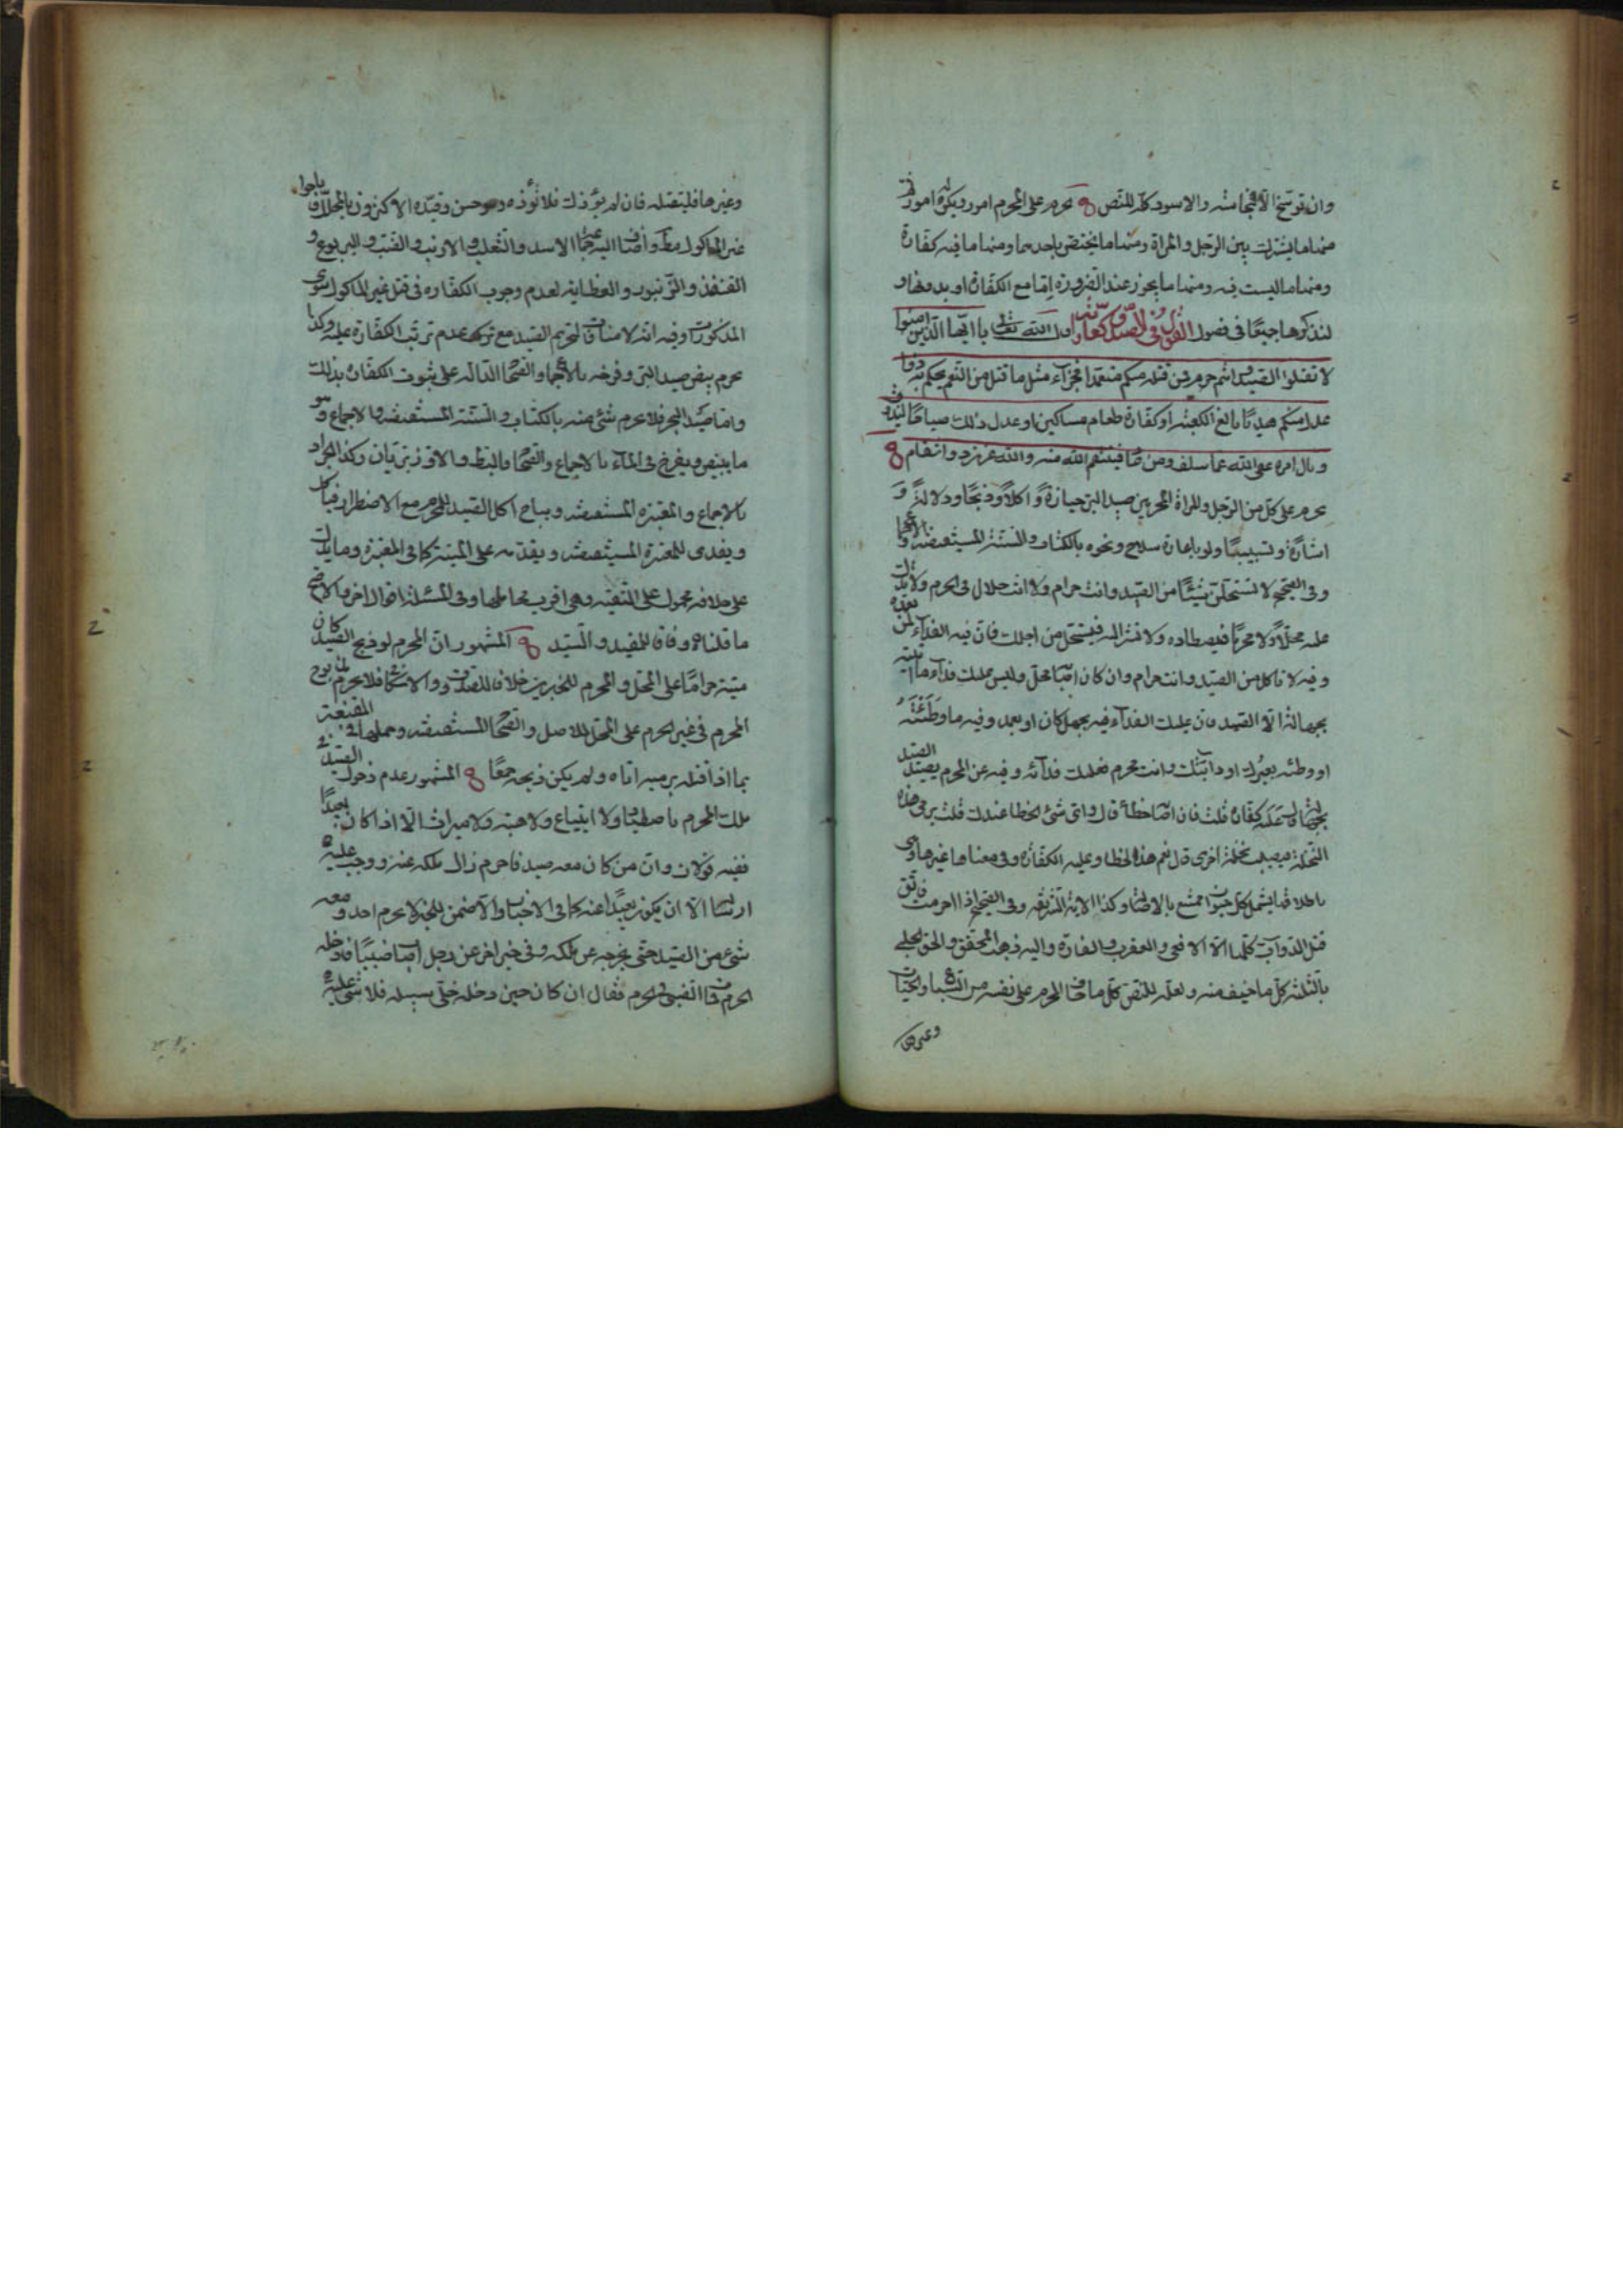 وان توسّخ الا لجاسته والاسود كلّه للنّص يحرم على المحرم امور ويكره له امور
منها ما يشترك بين الرّجل والمراة ومنها ما يختص باحدهما ومنها ما فيه كفّارة
ومنها ما ليست فيه ومنها ما يجوز عند الضّرورة امّا مع الكفّارة او بدونها و
لنذكرها جميعًا فى فصول القول فى الصّيد وكفّارته قال الله تعالى يا ايّها الّذين امنوا
لا تقتلوا الصّيد وانتم حرم ومن قتله منكم متعمّدا فجزاء مثل ما قتل من النّعم يحكم به ذوا
عدل منكم هديًا بالغ الكعبة او كفّارة طعام مساكين او عدل ذلك صيامًا ليذوق
وبال امره عفى الله عمّا سلف ومن عاد فينتقم الله منه والله عزيز ذو انتقام
يحرم على كلّ من الرّجل والمراة المحرمين صيد البرّ حيازةً واكلًا وذبحًا ودلالةً و
اشارةً وتسبيبًا ولو باعارة سلاح ونحوه بالكتاب والسّنّة المستفيضة والاجماع
وفى الصّحيح لا تستحلّنّ شيئًا من الصّيد وانت حرام ولا انت حلال فى الحرم ولا تدلّنّ
عليه محلًّا ولا محرمًا فيصطاده ولا تشر اليه فيستحلّ من اجلك فانّ فيه الفداء لمن تعمّده
وفيه لا تاكل من الصّيد وانت حرام وان كان اصابه محلّ وليس عليك فداء ما اتيته
بجهالة الّا الصّيد فان عليك الفداء فيه بجهل كان او بعمد وفيه ما وَطَئْتَهُ
او وطئه بعيرك او دابّتك وانت محرم فعليك فداؤه وفيه عن المحرم يصيد الصّيد
بجهالة عليه كفّارة قلت فان اصابه خطأ قال واىّ شئ الخطا عندك قلت يرمى هذه
النّخلة فيصيب نخلة اخرى قال نعم هذا الخطا وعليه الكفّارة وفى معناها غيرها وهى
باطلاقها يشمل كلّ حيوان ممتنع بالاصالة وكذا الاية الشّريفة وفى الصّحيح اذا احرمت فاتّق
قتل الدّوابّ كلّها الّا الافعى والعقرب والفارة واليه ذهب المحقّق والحق الحلبى
بالثّلثة كلّ ما خيف منه ولعلّه للنّصّ كلّ ما خاف المحرم على نفسه من السّباع والحيّات
وغيرها
وغيرها فليقتله فان لم يؤذك فلا تؤذه وهو حسن وقيّده الاكثرون بالمحلّل فاباحوا
غير الماكول مطلقًا واضاف اليه جماعة الاسد والثّعلب والارنب والضّبّ واليربوع و
القنفذ والزّنبور والعظاية لعدم وجوب الكفّاره فى قتل غير الماكول سوى
المذكورات وفيه انّه لا منافاة لتحريم الصّيد مع عدم ترتّب الكفّارة عليه وكذا
يحرم بيض صيد البرّ وفرخه بالاجماع والصّحاح الدّالّة على ثبوت الكفّارة بذلك
وامّا صيد البحر فلا يحرم شئ منه بالكتاب والسّنّة المستفيضة والاجماع وهو
ما يبيض ويفرخ فى الماء بالاجماع والصّحاح فالبط والاوز برّيّان وكذا الجراد
بالاجماع والمعتبرة المستفيضة ويباح اكل الصّيد للمحرم مع الاضطرار فياكل
ويفدى للمعتبرة المستفيضة ويقدّمه على الميتة كما فى المعتبرة وما يدلّ
على خلافه محمول على التّقيّة وهى اقرب محاملها وفى المسئلة اقوال اخر والاصحّ
ما قلناه وفاقًا للمفيد والسّيّد المشهور انّ المحرم لو ذبح الصّيد كان
ميتة حرامًا على المحلّ والمحرم للخبرين خلافًا للصدوق والاسكافى فلا يحرم مذبوح
المحرم فى غير الحرم على المحلّ للاصل والصّحاح المستفيضة وحملها فى المقنعة
بما اذا قتله برميه اياه ولم يكن ذبحه جمعًا المشهور عدم دخول الصّيد فى
ملك المحرم باصطياد ولا ابتياع ولا هبة ولا ميراث الّا اذا كان بعيدًا
ففيه قولان وانّ من كان معه صيد فاحرم زال ملكه عنه ووجب عليه
ارساله الّا ان يكون بعيدًا عنه كما فى الاخبار والّا ضمن للخبر لا يحرم احد ومعه
شئ من الصّيد حتّى يخرجه عن ملكه وفى خبر اخر عن رجل اصاب ضبيًا فادخله
الحرم فمات الضبى فى الحرم فقال ان كان حين دخله خلّى سبيله فلا شئ عليه